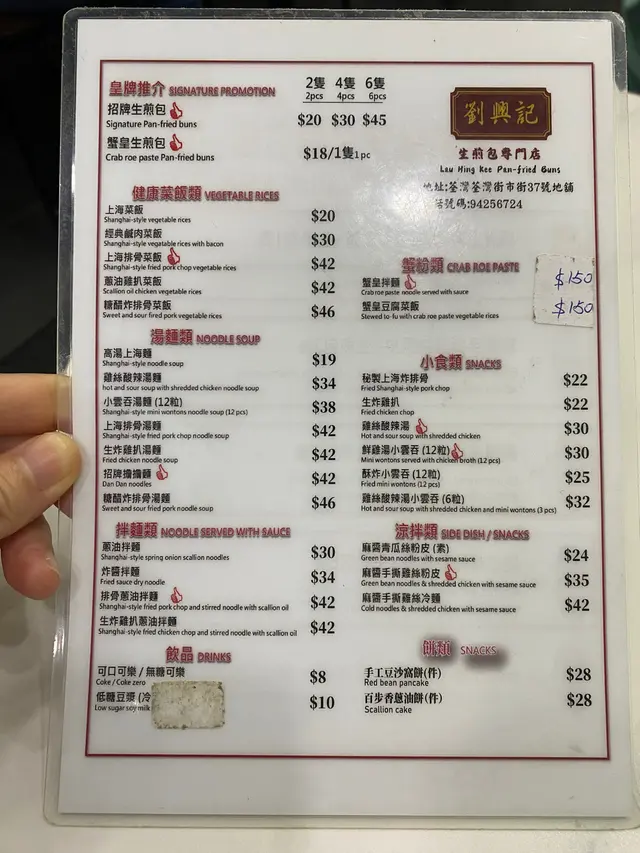 皇牌推介 SIGNATURE PROMOTION
2隻 4隻 6隻
2pcs 4pcs 6pcs
招牌生煎包
Signature Pan-fried buns
$20 $30 $45
蟹皇生煎包
Crab roe paste Pan-fried buns
$18/1隻1pc
劉興記
生煎包專門店
Lau Hing Kee Pan-fried Buns
地址:荃灣荃灣街市街37號地舖
號碼:94256724
健康菜飯類 VEGETABLE RICES
上海菜飯 $20
Shanghai-style vegetable rices
經典鹹肉菜飯 $30
Shanghai-style vegetable rices with bacon
上海排骨菜飯 $42
Shanghai-style fried pork chop vegetable rices
蔥油雞扒菜飯 $42
Scallion oil chicken vegetable rices
糖醋炸排骨菜飯 $46
Sweet and sour fired pork vegetable rices
湯麵類 NOODLE SOUP
高湯上海麵 $19
Shanghai-style noodle soup
雞絲酸辣湯麵 $34
hot and sour soup with shredded chicken noodle soup
小雲吞湯麵 (12粒) $38
Shanghai-style mini wontons noodle soup (12 pcs)
上海排骨湯麵 $42
Shanghai-style fried pork chop noodle soup
生炸雞扒湯麵 $42
Fried chicken noodle soup
招牌擔擔麵 $42
Dan Dan noodles
糖醋炸排骨湯麵 $46
Sweet and sour fried pork noodle soup
拌麵類 NOODLE SERVED WITH SAUCE
蔥油拌麵 $30
Shanghai-style spring onion scallion noodles
炸醬拌麵 $34
Fried sauce dry noodle
排骨蔥油拌麵 $42
Shanghai-style fried pork chop and stirred noodle with scallion oil
生炸雞扒蔥油拌麵 $42
Shanghai-style fried chicken chop and stirred noodle with scallion oil
飲品 DRINKS
可口可樂 / 無糖可樂 $8
Coke / Coke zero
低糖豆漿 (冷 $10
Low sugar soy milk
蟹粉類 CRAB ROE PASTE
蟹皇拌麵 $150
Crab roe paste noodle served with sauce
蟹皇豆腐菜飯 $150
Stewed to-fu with crab roe paste vegetable rices
小食類 SNACKS
秘製上海炸排骨 $22
Fried Shanghai-style pork chop
生炸雞扒 $22
Fried chicken chop
雞絲酸辣湯 $30
Hot and sour soup with shredded chicken
鮮雞湯小雲吞 (12粒) $30
Mini wontons served with chicken broth (12 pcs)
酥炸小雲吞 (12粒) $25
Fried mini wontons (12 pcs)
雞絲酸辣湯小雲吞 (6粒) $32
Hot and sour soup with shredded chicken and mini wontons (3 pcs)
涼拌類 SIDE DISH / SNACKS
麻醬青瓜絲粉皮 (素) $24
Green bean noodles with sesame sauce
麻醬手撕雞絲粉皮 $35
Green bean noodles & shredded chicken with sesame sauce
麻醬手撕雞絲冷麵 $42
Cold noodles & shredded chicken with sesame sauce
餅類 SNACKS
手工豆沙窩餅(件) $28
Red bean pancake
百步香蔥油餅(件) $28
Scallion cake